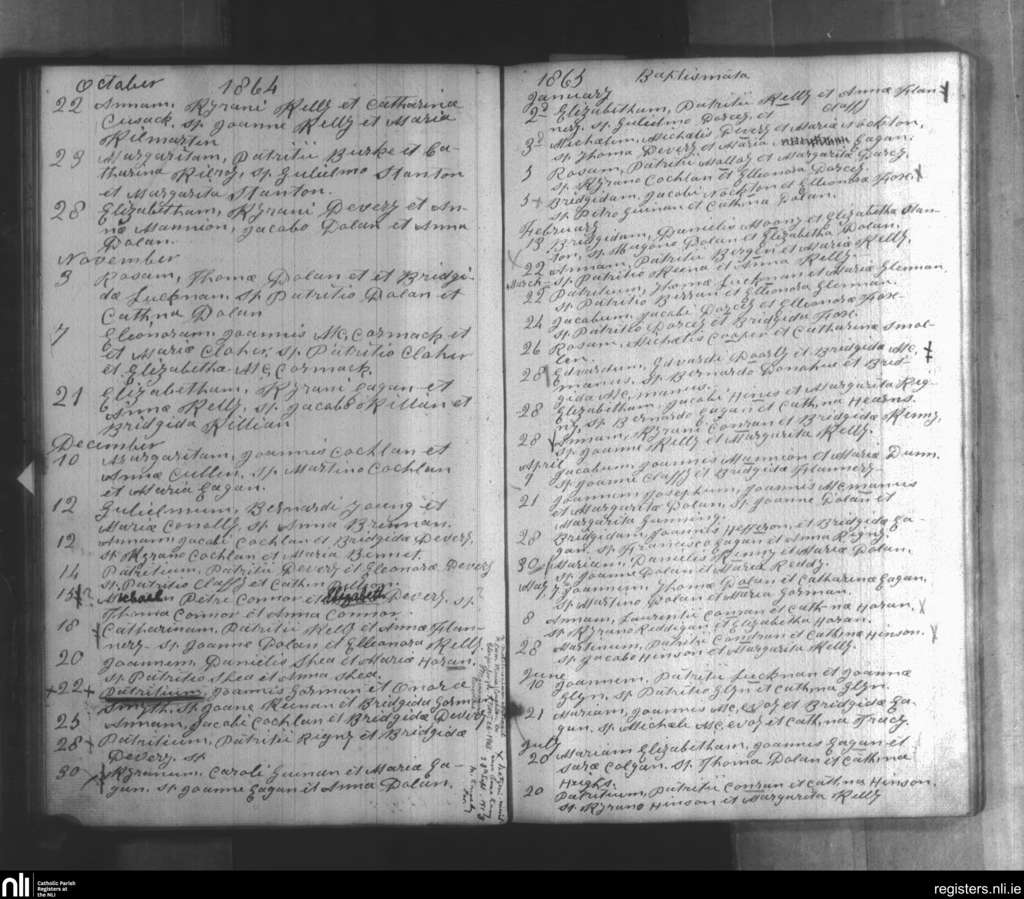 October 1864
22 Annam, Kyrani Kelly et Catharina
Cusack. Sp. Joanne Kelly et Maria
Kilmartin
23 Margaritam, Patritii Burke et Ca-
tharina Kilroy, Sp. Gulielmo Stanton
et Margarita Stanton.
28 Elizabetham, Kyrani Devery et An-
næ Mannion, Jacobo Dolan et Anna
Dolan.
November
3 Rosam, Thomæ Dolan et et Bridgi-
dæ Lucknam, Sp. Patritio Dolan et
Cathna Dolan
7 Eleonoram, Joannis Mc. Cormack et
et Mariæ Claher, Sp. Patritio Claher
et Elizabetha Mc. Cormack.
21 Elizabetham, Kyrani Eagan et
Annæ Kelly, Sp. Jacobo Killian et
Bridgida Killian
December
10 Margaritam, Joannis Cochlan et
Annæ Cullen, Sp. Martino Cochlan
et Maria Eagan.
12 Gulielmum, Bernardi Young et
Mariæ Conolly, Sp. Anna Brennan.
12 Annam, Jacobi Cochlan et Bridgida Devery,
Sp. Kyrano Cochlan et Maria Bennet.
14 Patritium, Patritii Devery et Eleonora Devery
Sp. Patritio Claffy et Cathna
15 Michael Petri Connor et Elizabeth Devery, Sp.
Thoma Connor et Anna Connor
18 Catharinam, Patritii Kelly et Annæ Flan-
nery. Sp. Joanne Dolan et Elleonora Kelly.
20 Joannem, Danielis Shea et Mariæ Horan,
Sp. Patritio Shea et Anna Shea.
+22+ Patritium, Joannis Gorman et Onoræ
Smyth. Sp. Joanne Keenan et Bridgida Gorman
25 Annam, Jacobi Cochlan et Bridgidæ Devery
28 Patritium, Patritii Rigny et Bridgidæ
Devery. Sp
30 Kyranum, Caroli Guinan et Maria Ea-
gan. Sp. Joanne Eagan et Anna Dolan.
1865 Baptismata
January
2d Elizabetham, Patritii Kelly et Annæ Flan-
nery. Sp. Gulielmo Dorcey et Claffy
3d Michælem, Michælis Devery et Mariæ Nockton,
Sp. Thoma Devery et Maria Eagan.
3 Rosam, Patritii Malloy et Margarita Darcy,
Sp. Kyrano Cochlan et Elleonora Darcey.
5+ Bridgidam, Jacobi Nockton et Elleonora Fox,
Sp. Petro Guinan et Cathna Dolan.
February
13 Bridgidam, Danielis Moony et Elizabetha Stan-
ton, Sp. Magone Dolan et Elizabetha Dolan.
22 Annam, Patritii Bergin et Mariæ Kelly,
Sp. Patritio Keena et Anna Kelly.
March
22 Patritium, Thomæ Luckman et Mariæ Glennan.
Sp. Patritio Birran et Elleonora Glennan.
24 Jacobum, Jacobi Dorcey et Elleonora Fox.
Sp. Patritio Dorcey et Bridgida Fox.
26 Rosam, Michælis Cooper et Catharina Smol-
len.
28 Edvardum, Edvardi Doorly et Bridgida Mc,
manus, Sp. Bernardo Donahue et Brid-
gida Mc, manus.
28 Elizabetham, Jacobi Hines et Margarita Rig-
ny, Sp. Bernardo Eagan et Cathna Hearns.
28 Annam, Kyrani Conran et Bridgida Kenny,
Sp. Joanne Kelly et Margarita Kelly.
April
9 Jacobum, Joannis Mannion et Maria Dunn.
Sp. Joanne Claffy et Bridgida Flannery.
21 Joannem Josephum, Joannis Mc, manus
et Margarita Dolan, Sp. Joanne Dolan et
Margarita Gunning.
28 Bridgidam, Joannis Heffron, et Bridgida Ea-
gan. Sp. Francisco Eagan et Anna Rigny.
30 Mariam, Danielis Kenny et Mariæ Dolan,
Sp. Joanne Dolan et Maria Reddy.
May 7 Joannem, Thomæ Dolan et Catharina Eagan.
Sp. Martino Dolan et Maria Gorman.
8 Annam, Laurentii Conran et Cathna Horan,
Sp. Kyrano Reddigan et Elizabetha Horan.
28 Martinum, Patritii Condran et Cathna Hinson.
Sp. Jacobo Hinson et Margarita Kelly.
June
10 Joannem, Patritii Luckman et Joannæ
Glyn, Sp. Patritio Glyn et Cathna Glyn.
21 Mariam, Joannis Mc, Evoy et Bridgida Ea-
gan, Sp. Michæle Mc, Evoy et Cathna Tracy
July
20 Mariam Elizabetham, Joannis Eagan et
Saræ Colgan. Sp. Thoma Dolan et Cathna
Hughs.
20 Patritium, Patritii Conran et Cathna Hinson.
Sp. Kyrano Hinson et Margarita Kelly
nli Catholic Parish
Registers at
the NLI
registers.nli.ie